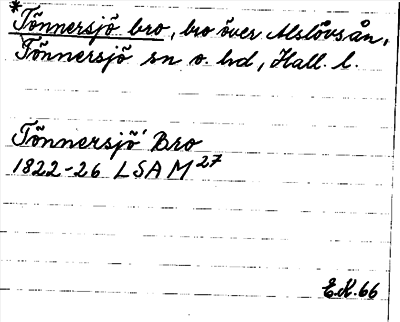 *Tönnersjö bro, bro över Alslövsån,
Tönnersjö sn o. hd, Hall. l.
Tönnersjö Bro
1822-26 LSA M27
E.K.66